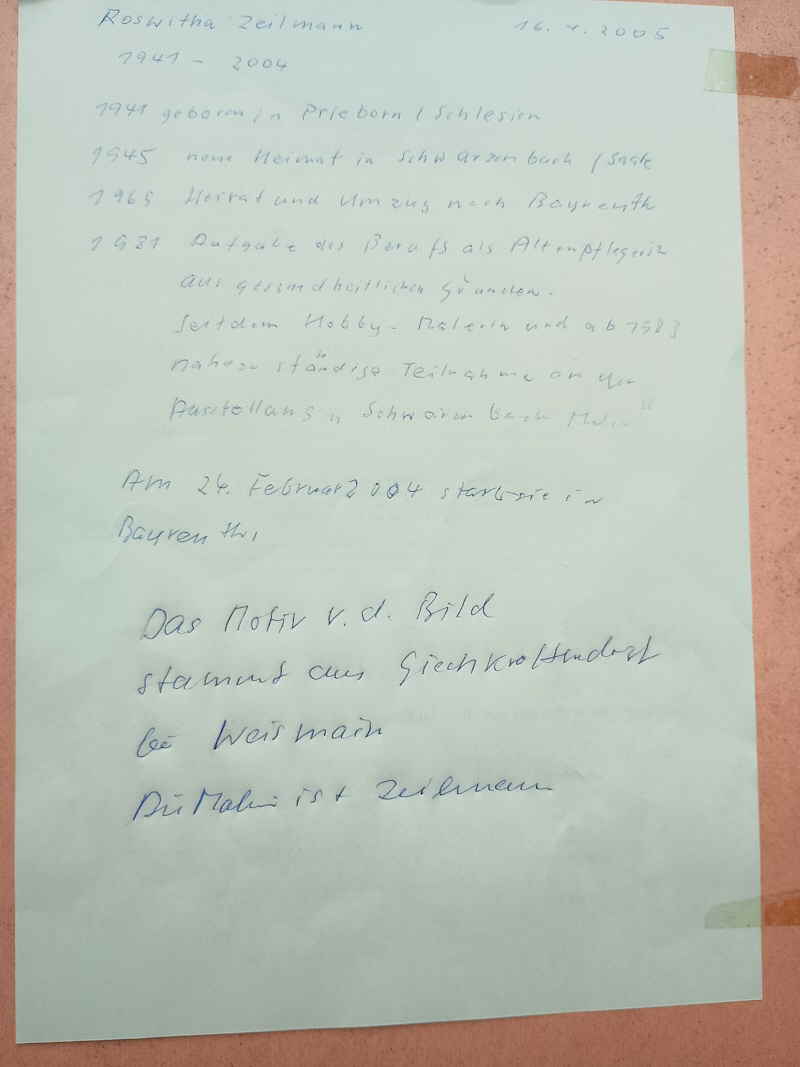 Roswitha Zeilmann 16.4.2005
1941 – 2004
1941 geboren in Prieborn / Schlesien
1945 neue Heimat in Schwarzenbach / Saale
1965 Heirat und Umzug nach Bayreuth
1981 Aufgabe des Berufs als Altenpflegerin
aus gesundheitlichen Gründen.
Seitdem Hobby-Malerin und ab 1983
nahezu ständige Teilnahme an der
Ausstellung "Schwarzenbach
Am 24. Februar 2004 starb sie in
Bayreuth.
Das Motiv v. d. Bild
stammt aus Giechkröttendorf
bei Weismain
Die Malerin ist Zeilmann